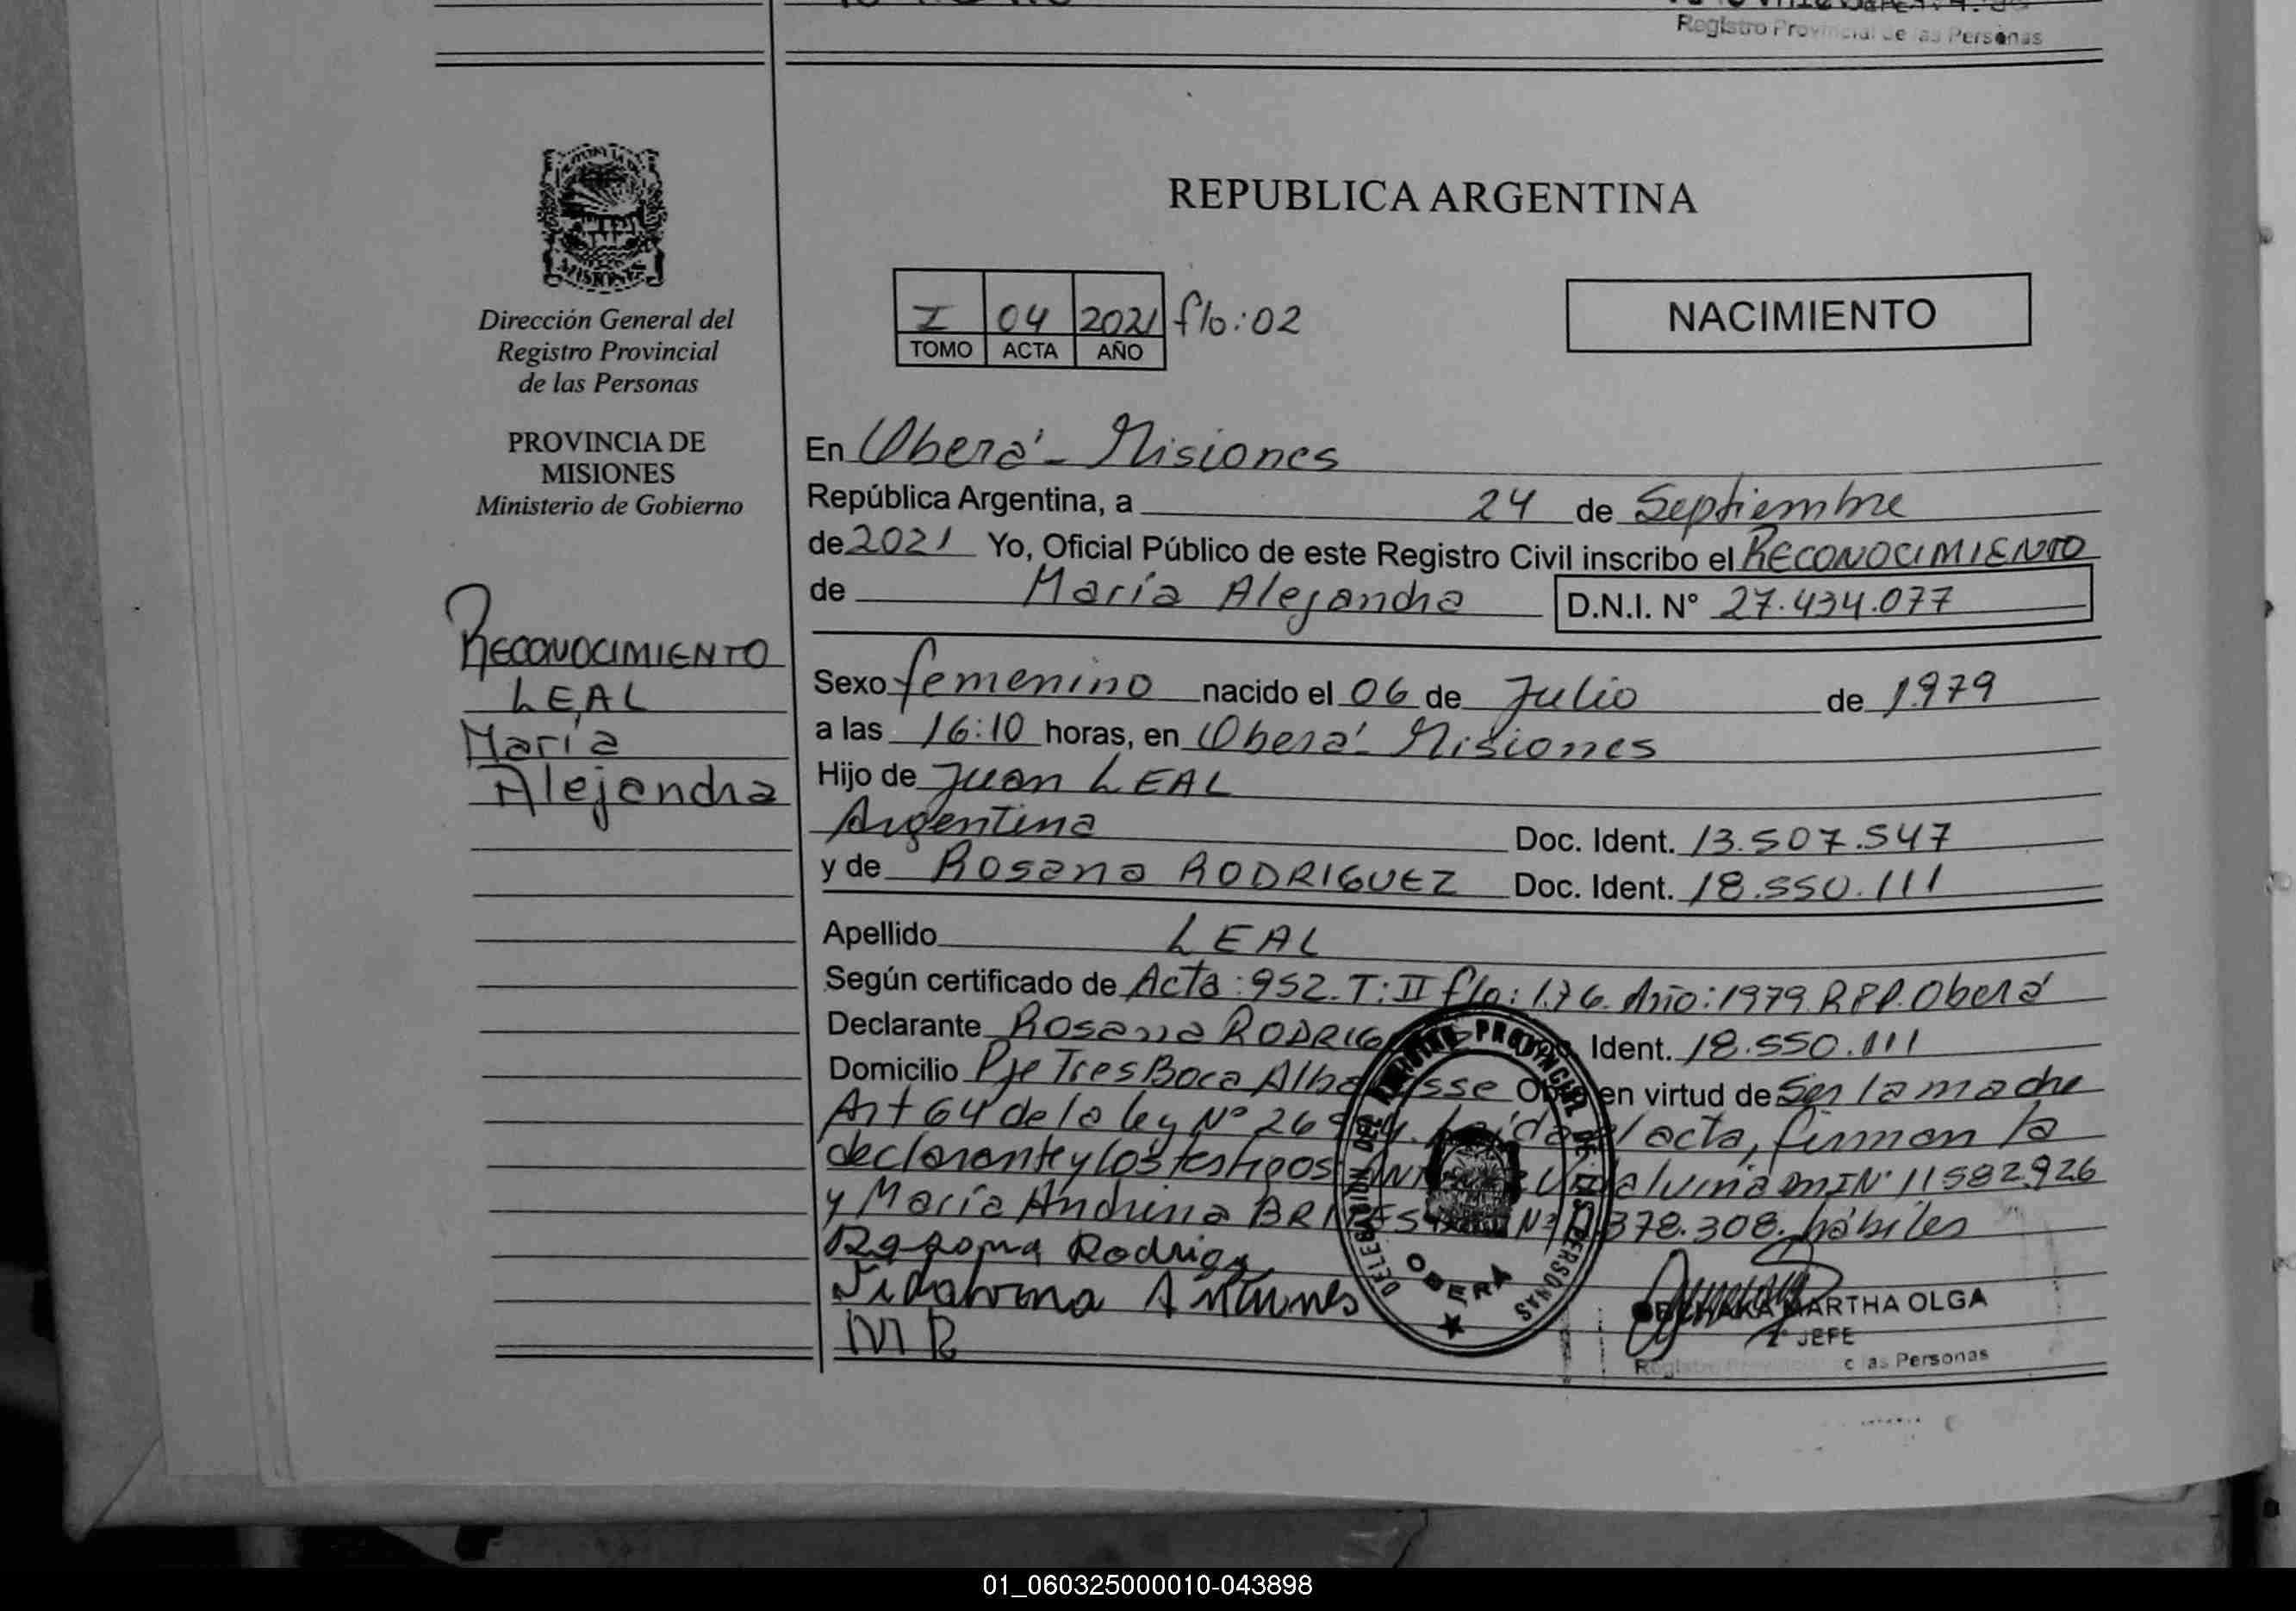 Registro Provincial de las Personas
MISIONES
Dirección General del
Registro Provincial
de las Personas
PROVINCIA DE
MISIONES
Ministerio de Gobierno
RECONOCIMIENTO
LEAL
María
Alejandra
REPUBLICA ARGENTINA
I 04 2021 flo: 02
TOMO ACTA AÑO
NACIMIENTO
En Oberá - Misiones
República Argentina, a 24 de Septiembre
de 2021 Yo, Oficial Público de este Registro Civil inscribo el RECONOCIMIENTO
de María Alejandra D.N.I. N° 27.434.077
Sexo femenino nacido el 06 de Julio de 1979
a las 16:10 horas, en Oberá - Misiones
Hijo de Juan LEAL
Argentina Doc. Ident. 13.507.547
y de Rosana RODRIGUEZ Doc. Ident. 18.550.111
Apellido LEAL
Según certificado de Acta: 952. T: II flo: 176. Año: 1979. RPP. Oberá
Declarante Rosana RODRIG Ident. 18.550.111
Domicilio Pje Tres Boca Alba sse en virtud de Ser la madre
Art 64 de la ley N° 26 acta, firman la
declarante y los testigos N° 11582926
y María Andrina N° 378.308. hábiles
Rosana Rodrigu
Vidalvina Antunes
M R
DELEGACION DEL REGISTRO PROVINCIAL DE LAS PERSONAS
OBERA
MARTHA OLGA
JEFE
Registro las Personas
01_060325000010-043898